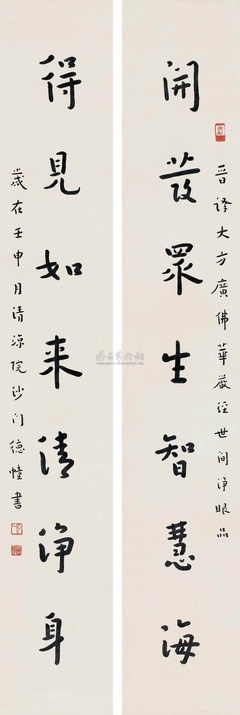 晋譯大方廣佛華嚴經世间淨眼品
開發眾生智慧海
得見如来清淨身
歲在壬申月清涼院沙门德幢書